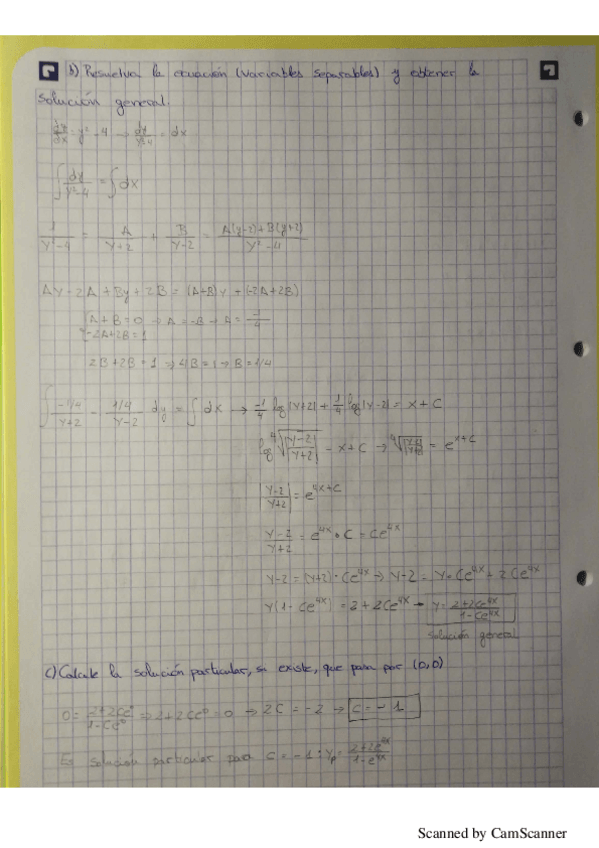 b) Resuelva la ecuación (variables separables) y obtener la
solución general.
dy/dx = y² - 4 → dy/y²-4 = dx
∫ dy/y²-4 = ∫ dx
1/y²-4 = A/y+2 + B/y-2 = A(y-2)+B(y+2)/y²-4
Ay - 2A + By + 2B = (A+B)y + (-2A+2B)
A+B=0 → A=-B → A = -1/4
-2A+2B=1
2B+2B=1 ⇒ 4B=1 → B=1/4
∫ -1/4/y+2 1/4/y-2 dy = ∫ dx → -1/4 log|y+2| + 1/4 log|y-2| = x+C
log ⁴√|y-2|/|y+2| = x+C → ⁴√|y-2|/|y+2| = e^x+C
|y-2/y+2| = e^4x+C
y-2/y+2 = e^4x · C = Ce^4x
y-2 = (y+2)·Ce^4x → y-2 = y·Ce^4x + 2Ce^4x
y(1-Ce^4x) = 2+2Ce^4x → y = 2+2Ce^4x/1-Ce^4x
solución general
c) Calcule la solución particular, si existe, que pasa por (0,0)
0 = 2+2Ce⁰/1-Ce⁰ ⇒ 2+2Ce⁰ = 0 ⇒ 2C = -2 → C = -1
solución particular para C = -1 : yp = 2+2e^4x/1-e^4x
Scanned by CamScanner